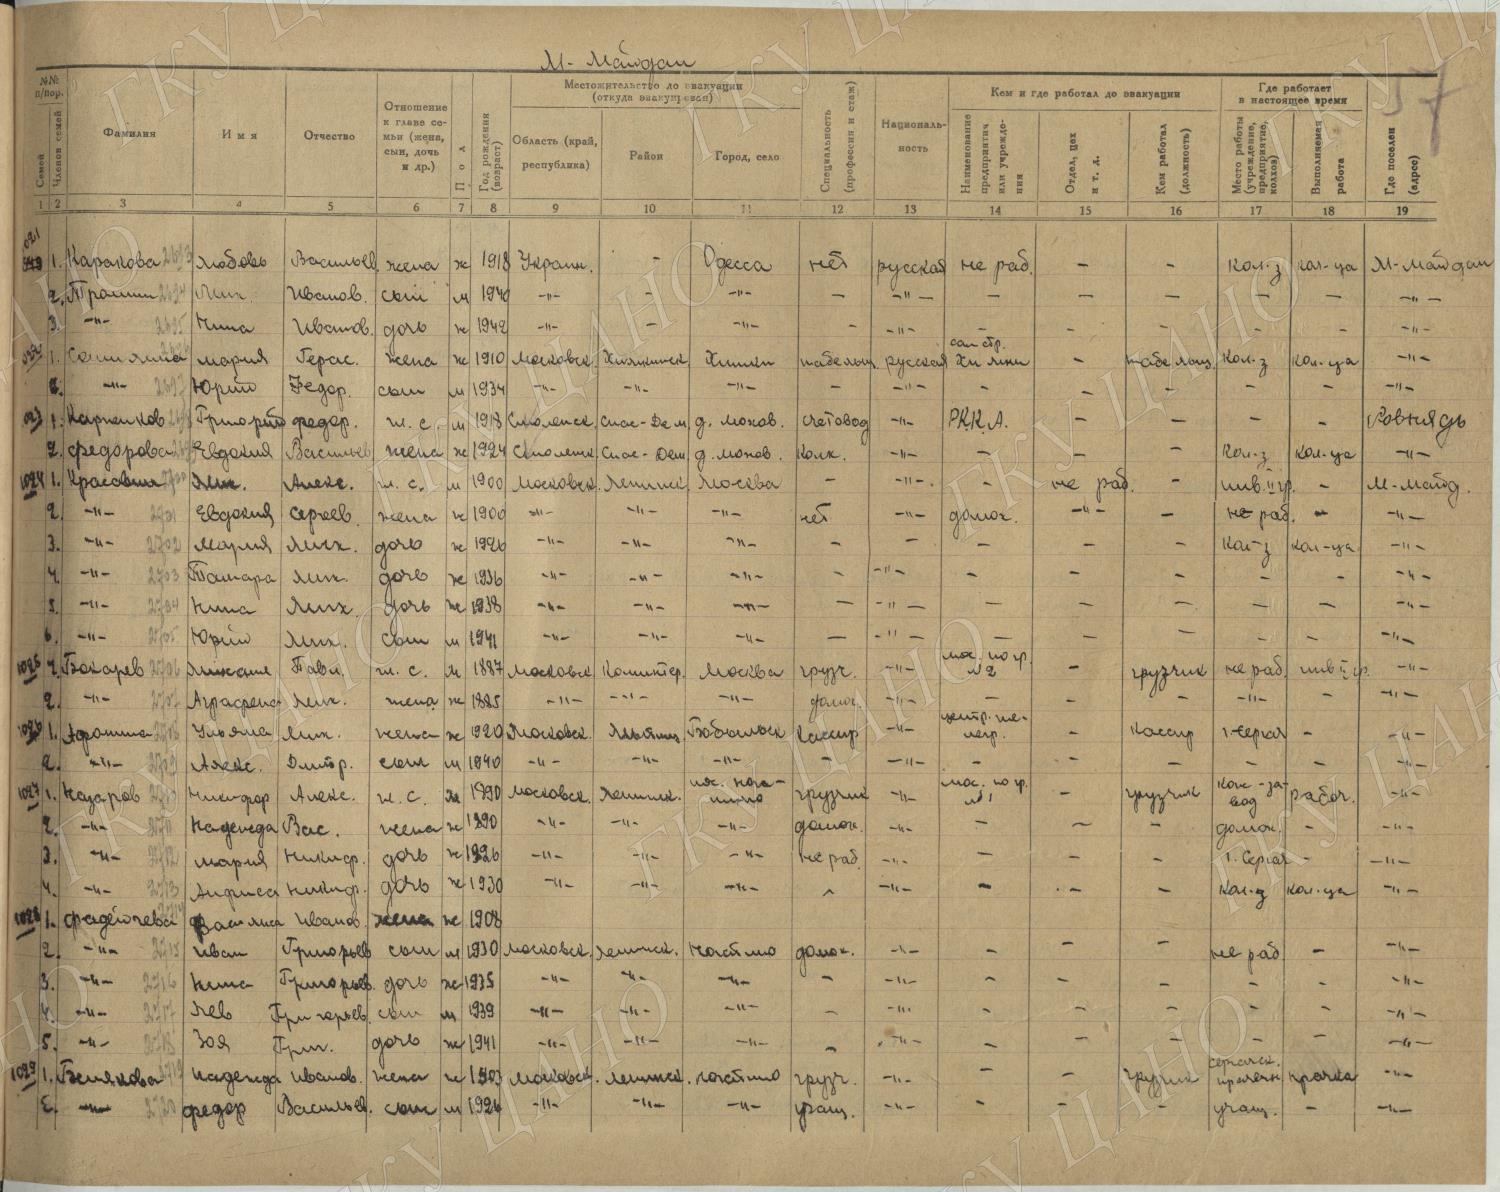 М- Майдан
57
№№ п/пор.
Семей
Членов семей
Фамилия
Имя
Отчество
Отношение к главе семьи (жена, сын, дочь и др.)
Пол
Год рождения (возраст)
Местожительство до эвакуации (откуда эвакуирован)
Область (край, республика)
Район
Город, село
Специальность (профессия и стаж)
Националь- ность
Кем и где работал до эвакуации
Наименование предприятия или учрежде- ния
Отдел, цех и т. д.
Кем работал (должность)
Где работает в настоящее время
Место работы (учреждение, предприятие, колхоз)
Выполняемая работа
Где поселен (адрес)
1 2 3 4 5 6 7 8 9 10 11 12 13 14 15 16 17 18 19
1021 1. Каракова 2693 Любовь Васильев. жена ж 1918 Украин. - Одесса нет русская не раб. - - кол-з кол-ца М-Майдан
2. 2694 Мих. Иванов. сын м 1940 -"- - -"- - -"- - - - - - -"-
3. -"- 2695 Нина Иванов. дочь ж 1942 -"- - -"- - -"- - - - - - -"-
1022 1. Мария Герас. жена ж 1910 Московск. Химкинск. Химки табельщ. русская Химки - табельщ. Кол-з кол-ца -"-
2. -"- 2697 Юрий Федор. сын м 1934 -"- -"- -"- - -"- - - - - - -"-
1023 1. Карпенков Григорий федор. ж. с. м 1918 Смоленск. Спас-Дем. д. мохов. счетовод -"- Р.К.К.А. - - - -
2. федорова Евдокия Васильев жена ж 1924 Смоленск Спас-Дем. д. мохов. Колх. -"- - - - кол-з кол-ца -"-
1024 1. 2700 Мих. Алекс. ж. с. м 1900 Московск. Ленинск. Москва - -"- - не раб. - инв. II гр. - М-Майд.
2. -"- 2701 Евдокия Сергеев. жена ж 1900 -"- -"- -"- нет -"- домох. -"- - не раб. - -"-
3. -"- 2702 Мария Мих. дочь ж 1926 -"- -"- -"- - - - - - Кол-з кол-ца -"-
4. -"- 2703 Тамара Мих. дочь ж 1936 -"- -"- -"- - -"- - - - - - -"-
5. -"- 2704 Нина Мих. дочь ж 1938 -"- -"- -"- - -"- - - - - - -"-
6. -"- 2705 Юрий Мих. сын м 1941 -"- -"- -"- - -"- - - - - - -"-
1025 1. Бокарев 2706 Павл. ж. с. м 1887 Московск Коминтер. Москва грузч. -"- мос. № 2 - грузчик не раб. инв II гр. -"-
2. -"- 2707 Аграфена Мих. жена ж 1885 -"- -"- -"- домох. -"- - -"- - -"-
1026 1. 2708 Ульяна Мих. жена ж 1920 Московск. кассир -"- - кассир 1-Серия - -"-
2. -"- 2709 Алекс. Дмитр. сын м 1940 -"- -"- -"- - -"- - - - - - -"-
1027 1. Назаров 2710 Никифор Алекс. ж. с. м 1890 Московск. Ленинск. грузчик -"- мос. № 1 - грузчик завод рабоч. -"-
2. -"- 2711 Надежда Вас. жена ж 1890 -"- -"- -"- домох. -"- - - - домох. - -"-
3. -"- 2712 Мария Никиф. дочь ж 1926 -"- -"- -"- не раб -"- - - - 1. Серия - -"-
4. -"- 2713 Анфиса Никиф. дочь ж 1930 -"- -"- -"- - -"- - - - кол-з кол-ца -"-
1028 1. Василиса Иванов. жена ж 1908
2. -"- 2715 Иван Григорьев сын м 1930 Московск. Ленинск. домох. -"- - - - не раб - -"-
3. -"- 2716 Нина Григорьев. дочь ж 1935 -"- -"- -"- - -"- - - - - - -"-
4. -"- 2717 Лев Григорьев. сын м 1939 -"- -"- -"- - -"- - - - - - -"-
5. -"- 2718 Зоя Григ. дочь ж 1941 -"- -"- -"- - -"- - - - - - -"-
1029 1. Белякова 2719 Надежда Иванов. жена ж 1903 Московск. Ленинск. грузч. -"- - - грузчик прачка -"-
2. -"- 2720 федор Васильев. сын м 1926 -"- -"- -"- учащ. -"- - - - учащ. - -"-
ГКУ ЦАНО